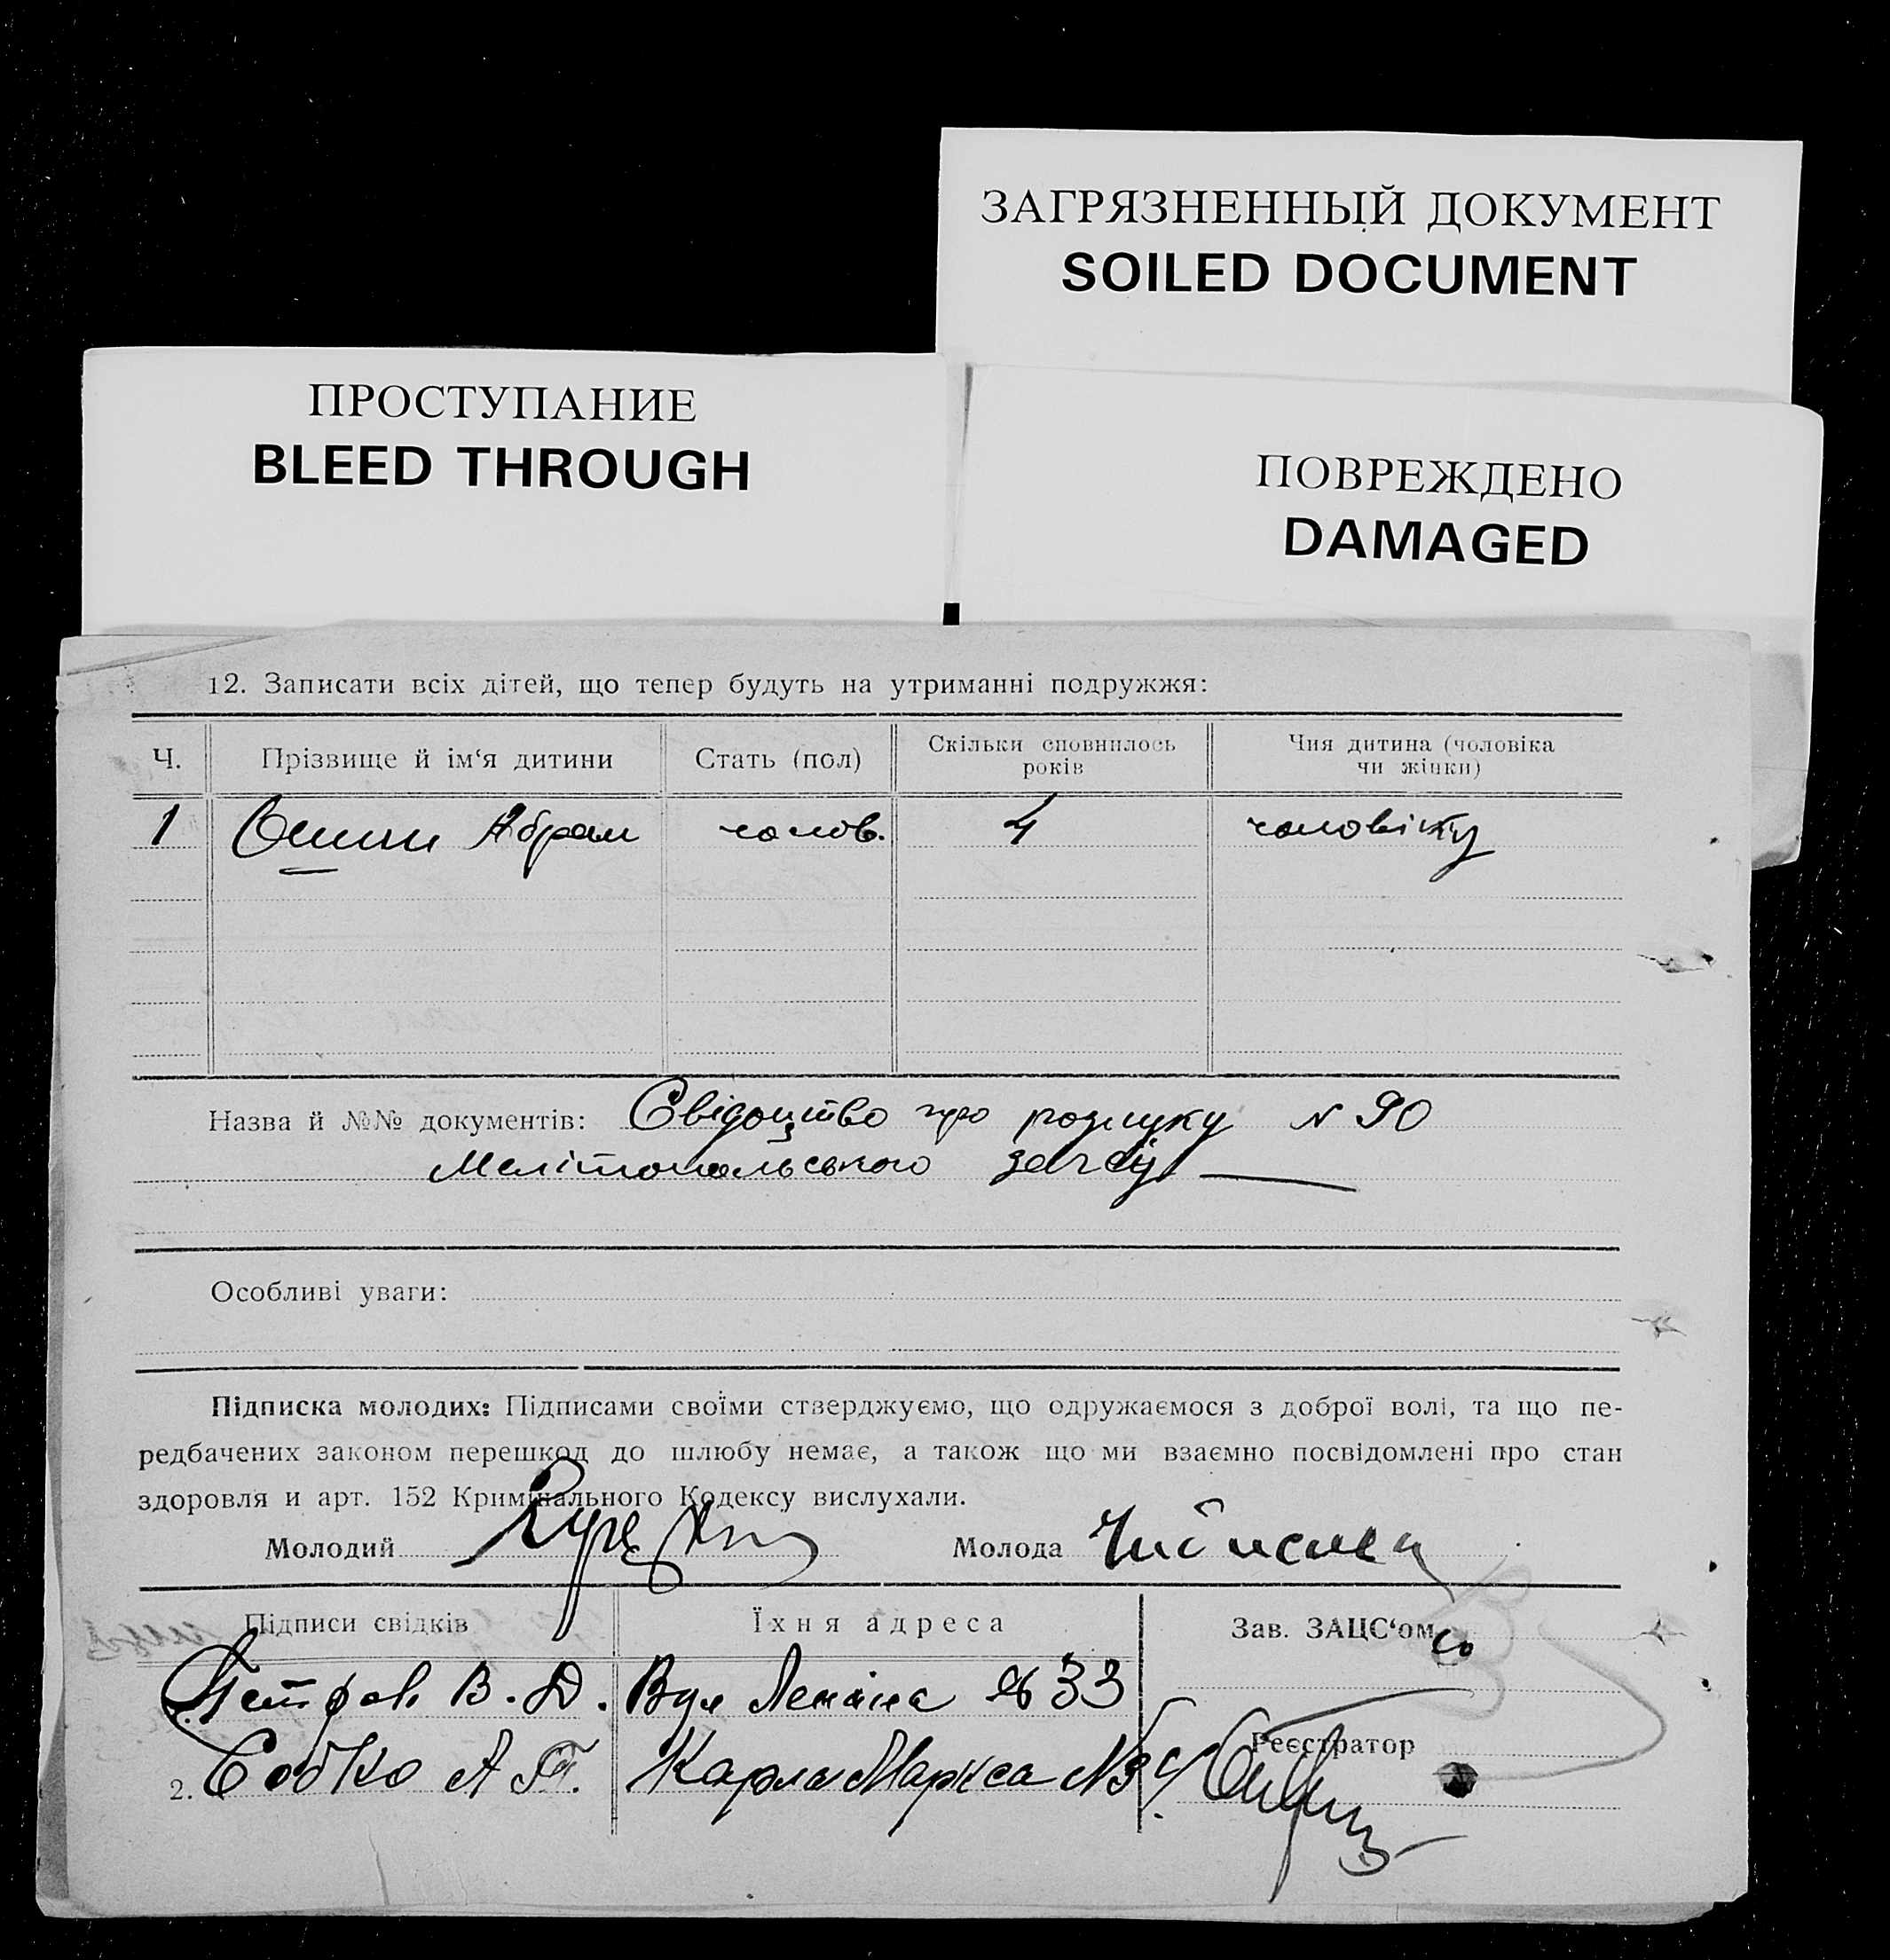 ЗАГРЯЗНЕННЫЙ ДОКУМЕНТ
SOILED DOCUMENT
ПРОСТУПАНИЕ
BLEED THROUGH
ПОВРЕЖДЕНО
DAMAGED
12. Записати всіх дітей, що тепер будуть на утриманні подружжя:
Ч. Прізвище й ім‘я дитини Стать (пол) Скільки сповнилось років Чия дитина (чоловіка чи жінки)
1 Абрам чолов. 4 чоловіку
Назва й №№ документів: Свідоцтво про розлуку N 90
Мелітопольського загсу
Особливі уваги:
Підписка молодих: Підписами своїми стверджуємо, що одружаємося з доброї волі, та що пе-
редбачених законом перешкод до шлюбу немає, а також що ми взаємно посвідомлені про стан
здоровля и арт. 152 Кримінального Кодексу вислухали.
Молодий Молода
Підписи свідків Їхня адреса Зав. ЗАЦС‘ом
Петров В. Д. Вул Леніна № 33
Реєстратор
2. Собко А П. Карла Маркса N